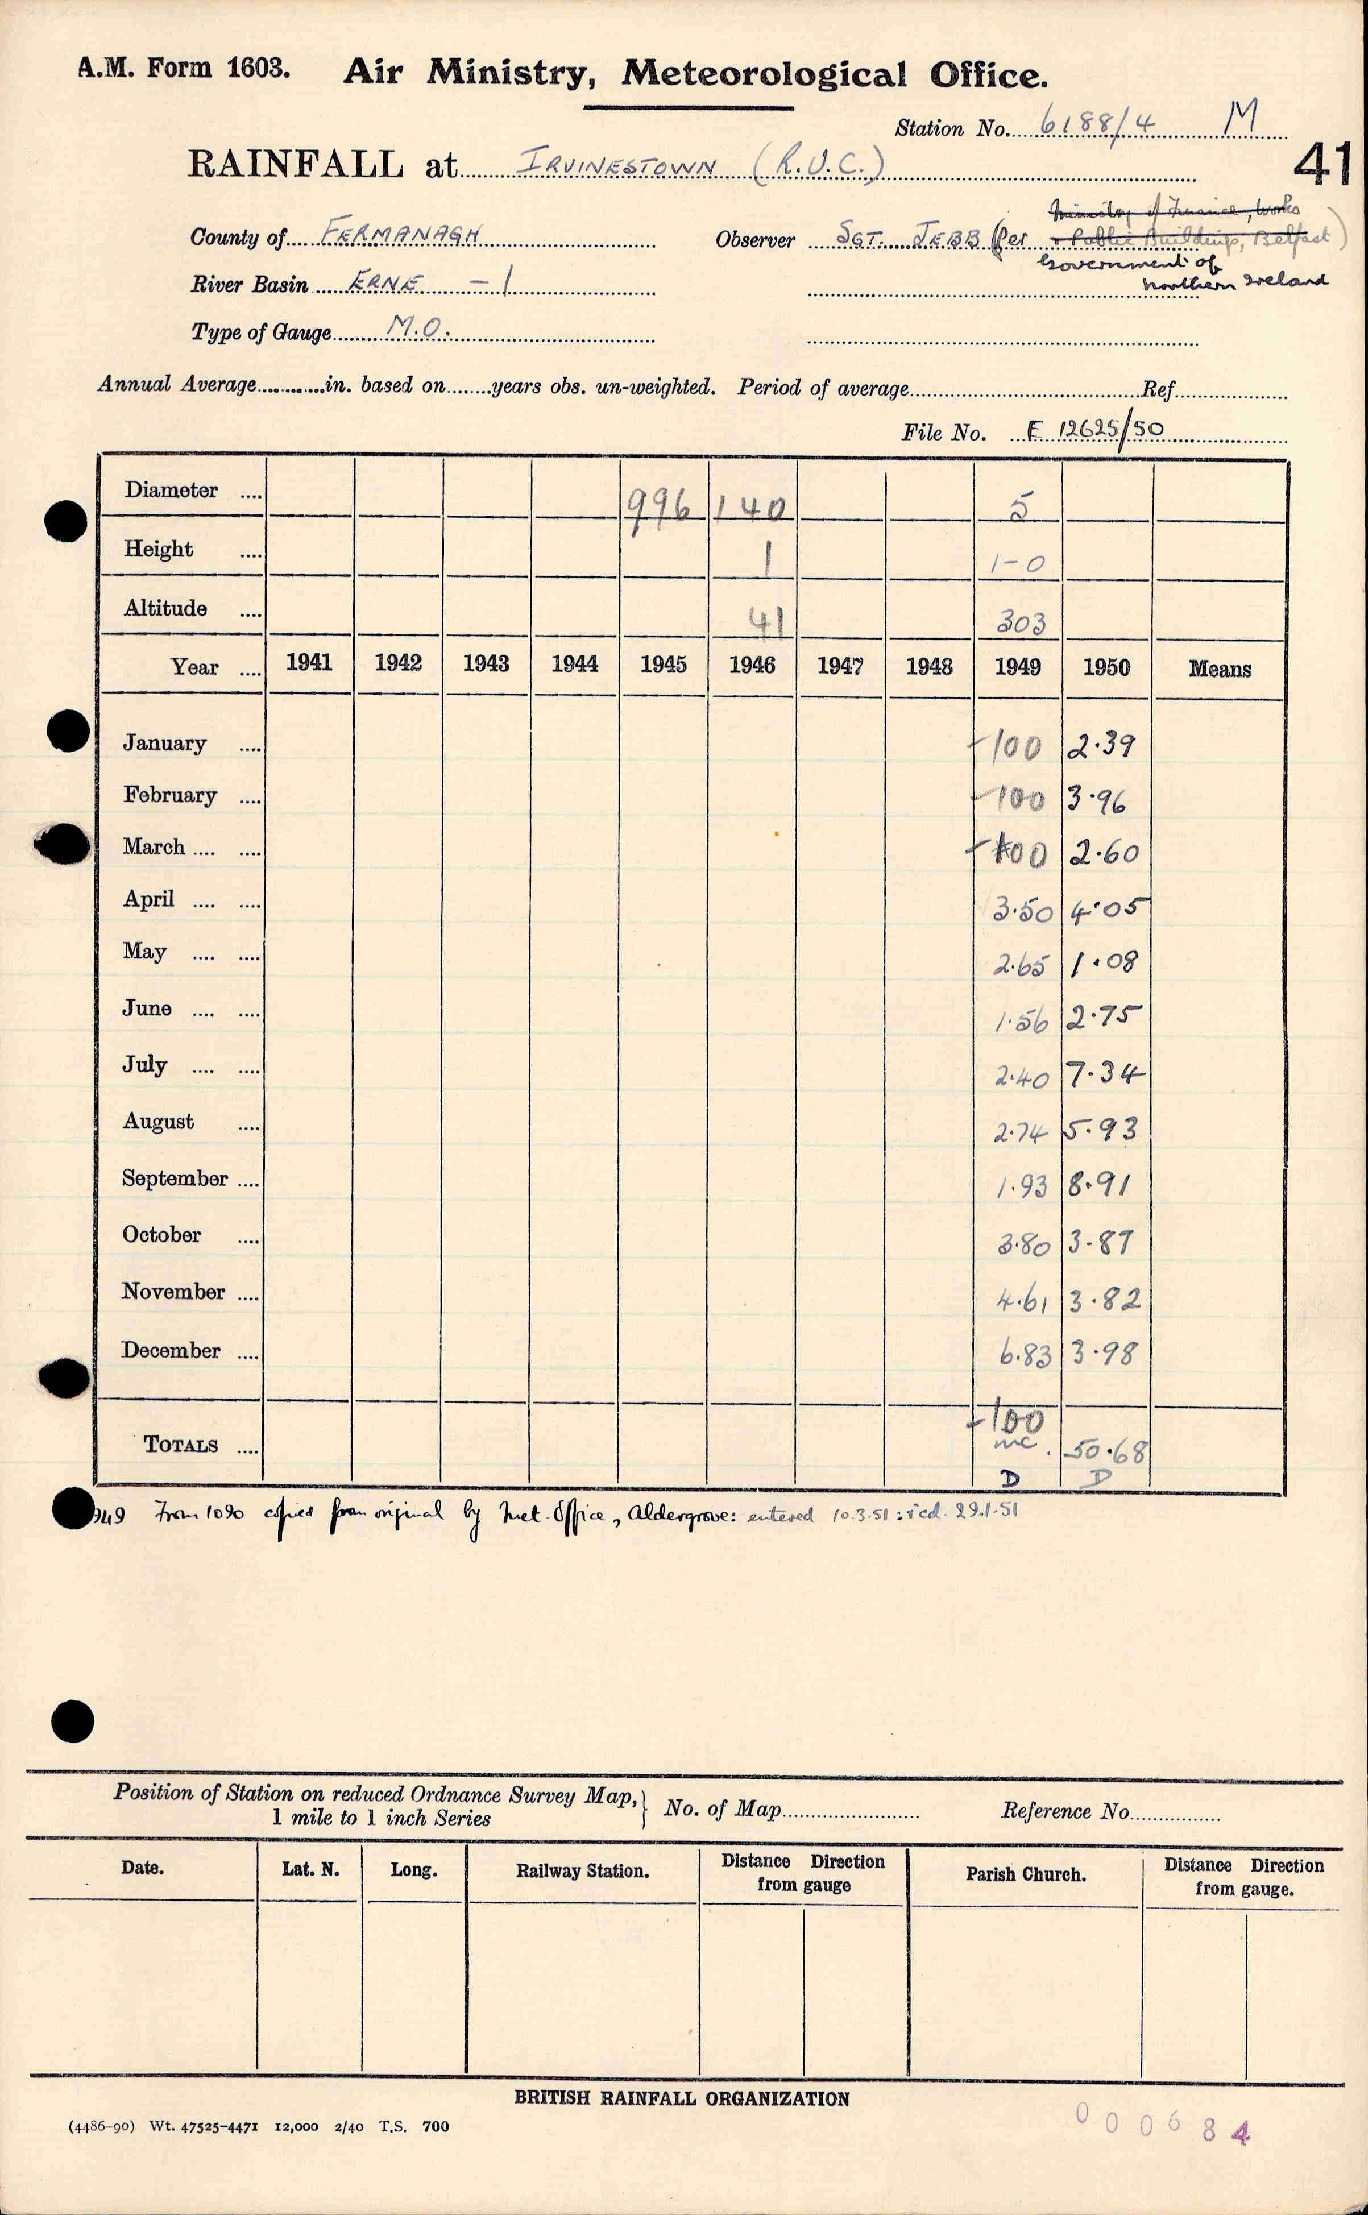 A.M. Form 1603. Air Ministry, Meteorological Office.
Station No. 6188/4 M
RAINFALL at IRVINESTOWN (R.U.C.)
41
Ministry of Finance, Works
County of FERMANAGH Observer SGT. JEBB (Per & Public Buildings, Belfast)
Government of
River Basin ERNE - 1 Northern Ireland
Type of Gauge M.O.
Annual Average in. based on years obs. un-weighted. Period of average Ref
File No. E 12625/50
Diameter .... 996 140 5
Height .... 1 1-0
Altitude .... 41 303
Year .... 1941 1942 1943 1944 1945 1946 1947 1948 1949 1950 Means
January .... -100 2.39
February .... -100 3.96
March .... .... -100 2.60
April .... .... 3.50 4.05
May .... .... 2.65 1.08
June .... .... 1.56 2.75
July .... .... 2.40 7.34
August .... 2.74 5.93
September .... 1.93 8.91
October .... 3.80 3.87
November .... 4.61 3.82
December .... 6.83 3.98
-100
TOTALS .... inc. 50.68
D D
949 From 1090 copies from original by Met. Office, Aldergrove: entered 10.3.51: rcd. 29.1.51
Position of Station on reduced Ordnance Survey Map,} No. of Map Reference No.
1 mile to 1 inch Series
Date. Lat. N. Long. Railway Station. Distance Direction from gauge Parish Church. Distance Direction from gauge.
BRITISH RAINFALL ORGANIZATION
(4486-90) Wt. 47525-4471 12,000 2/40 T.S. 700
000684